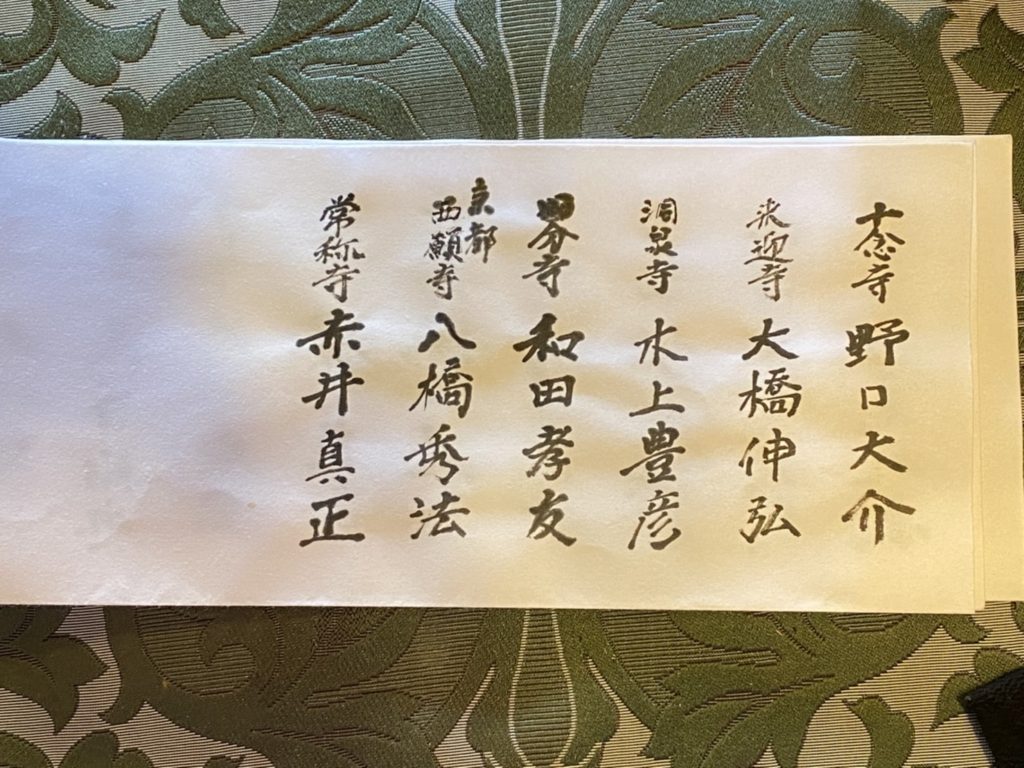 十念寺 野口大介
来迎寺 大橋伸弘
洞泉寺 水上豊彦
寺 和田孝友
京都西願寺 八橋秀法
常称寺 赤井真正